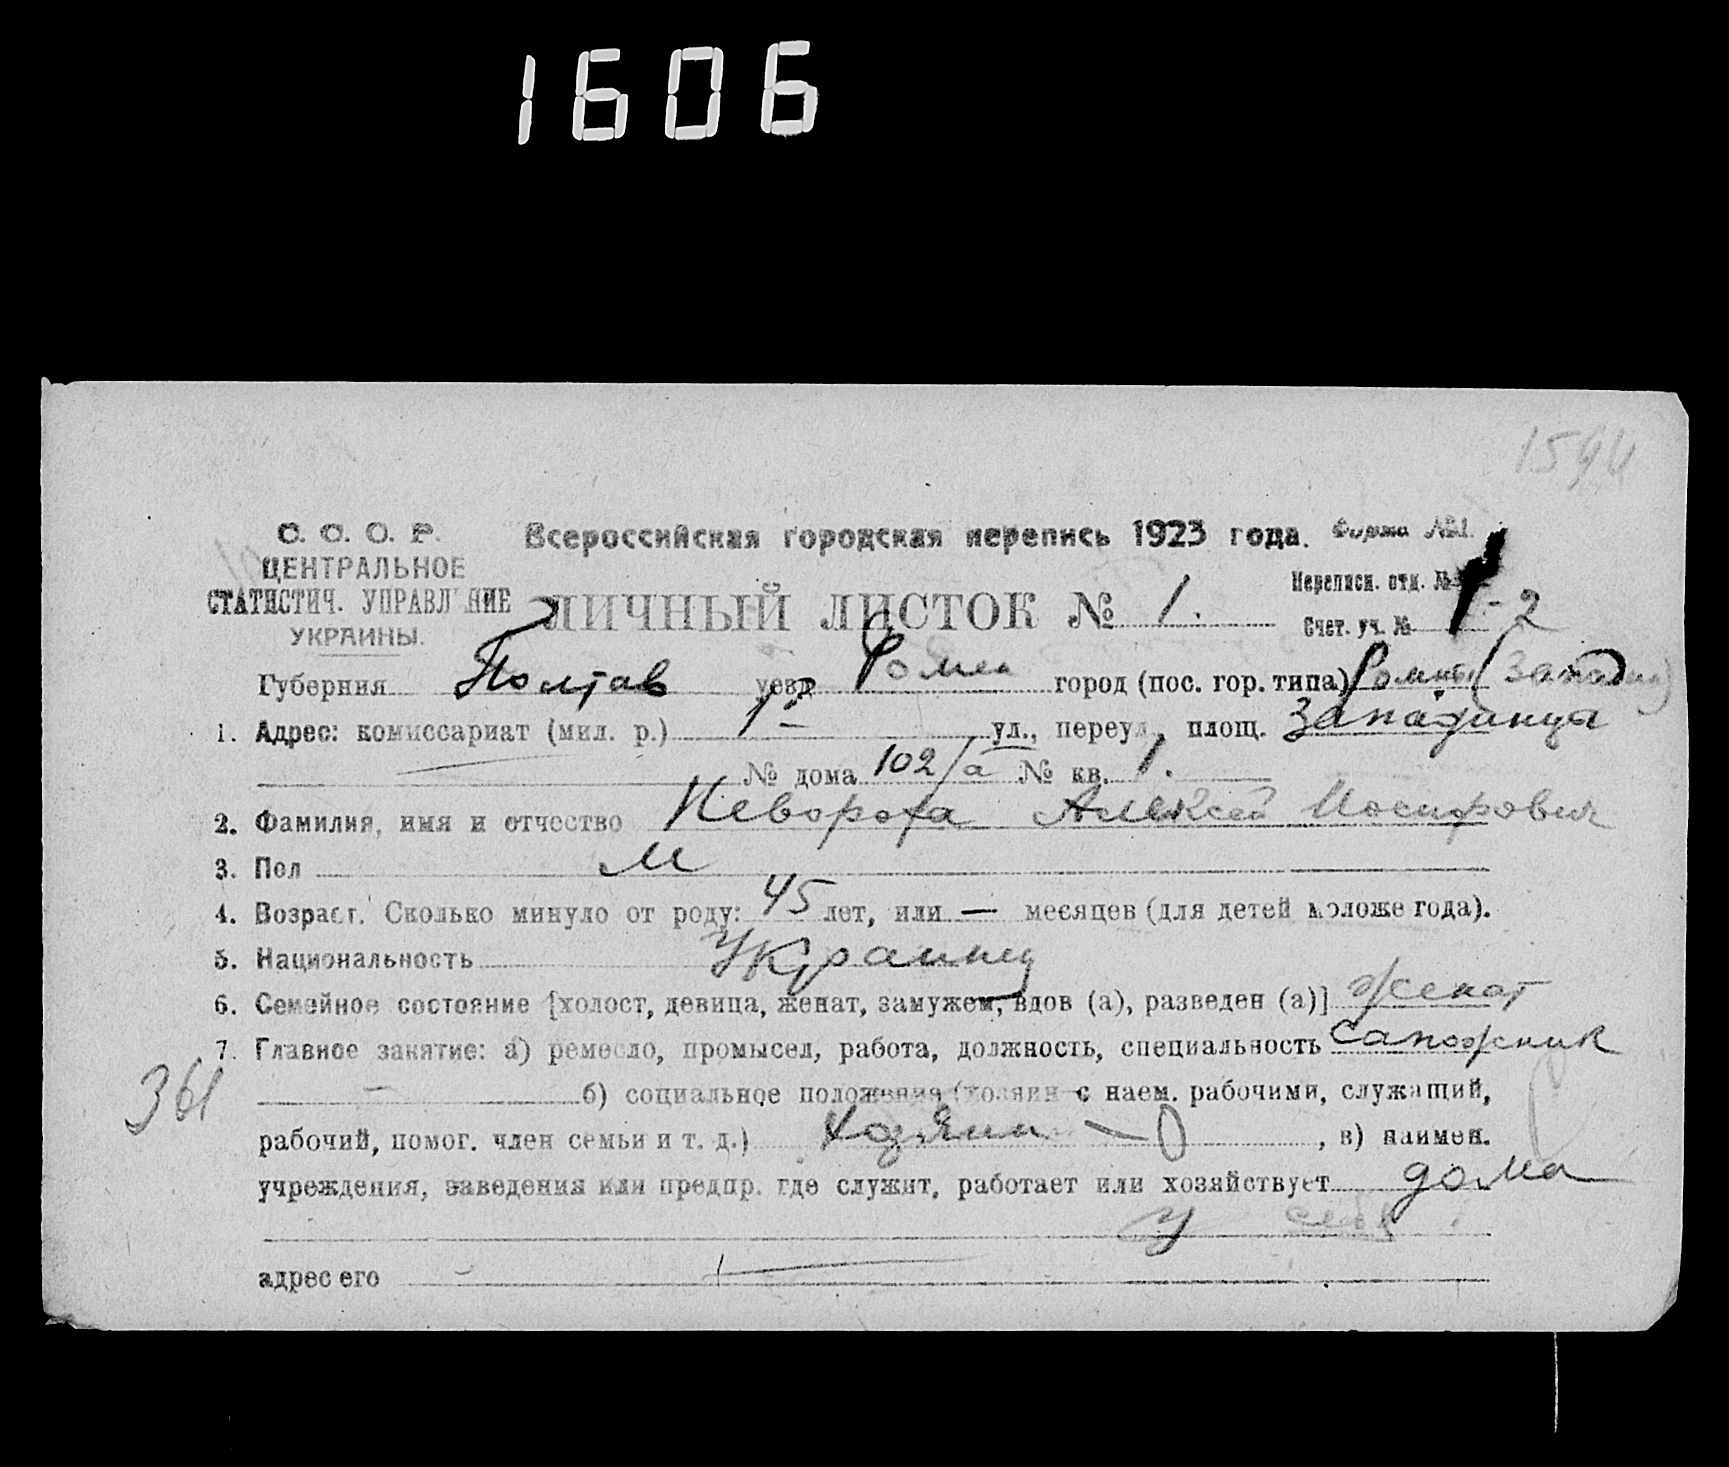 1606
1594
С. С. С. Р.
ЦЕНТРАЛЬНОЕ
СТАТИСТИЧ. УПРАВЛЕНИЕ
УКРАИНЫ.
Всероссийская городская перепись 1923 года. Форма №1.
ЛИЧНЫЙ ЛИСТОК № 1.
Переписн. отд. №
Счет. уч. № 1-2
Губерния Полтав уезд Ромен город (пос. гор. типа) Ромны (Запад
1. Адрес: комиссариат (мил. р.) 1й ул., переул., площ. Западинцы
№ дома 102/а № кв. 1.
2. Фамилия, имя и отчество Неворота Алексей Иосифович
3. Пол М
4. Возраст. Сколько минуло от роду: 45 лет, или — месяцев (для детей моложе года).
5. Национальность Украинец
6. Семейное состояние [холост, девица, женат, замужем, вдов (а), разведен (а)] женат
7. Главное занятие: а) ремесло, промысел, работа, должность, специальность сапожник
361
– б) социальное положение (хозяин с наем. рабочими, служащий,
рабочий, помог. член семьи и т. д.) Хозяин – О , в) наимен.
учреждения, заведения или предпр. где служит, работает или хозяйствует дома
у себя
адрес его –